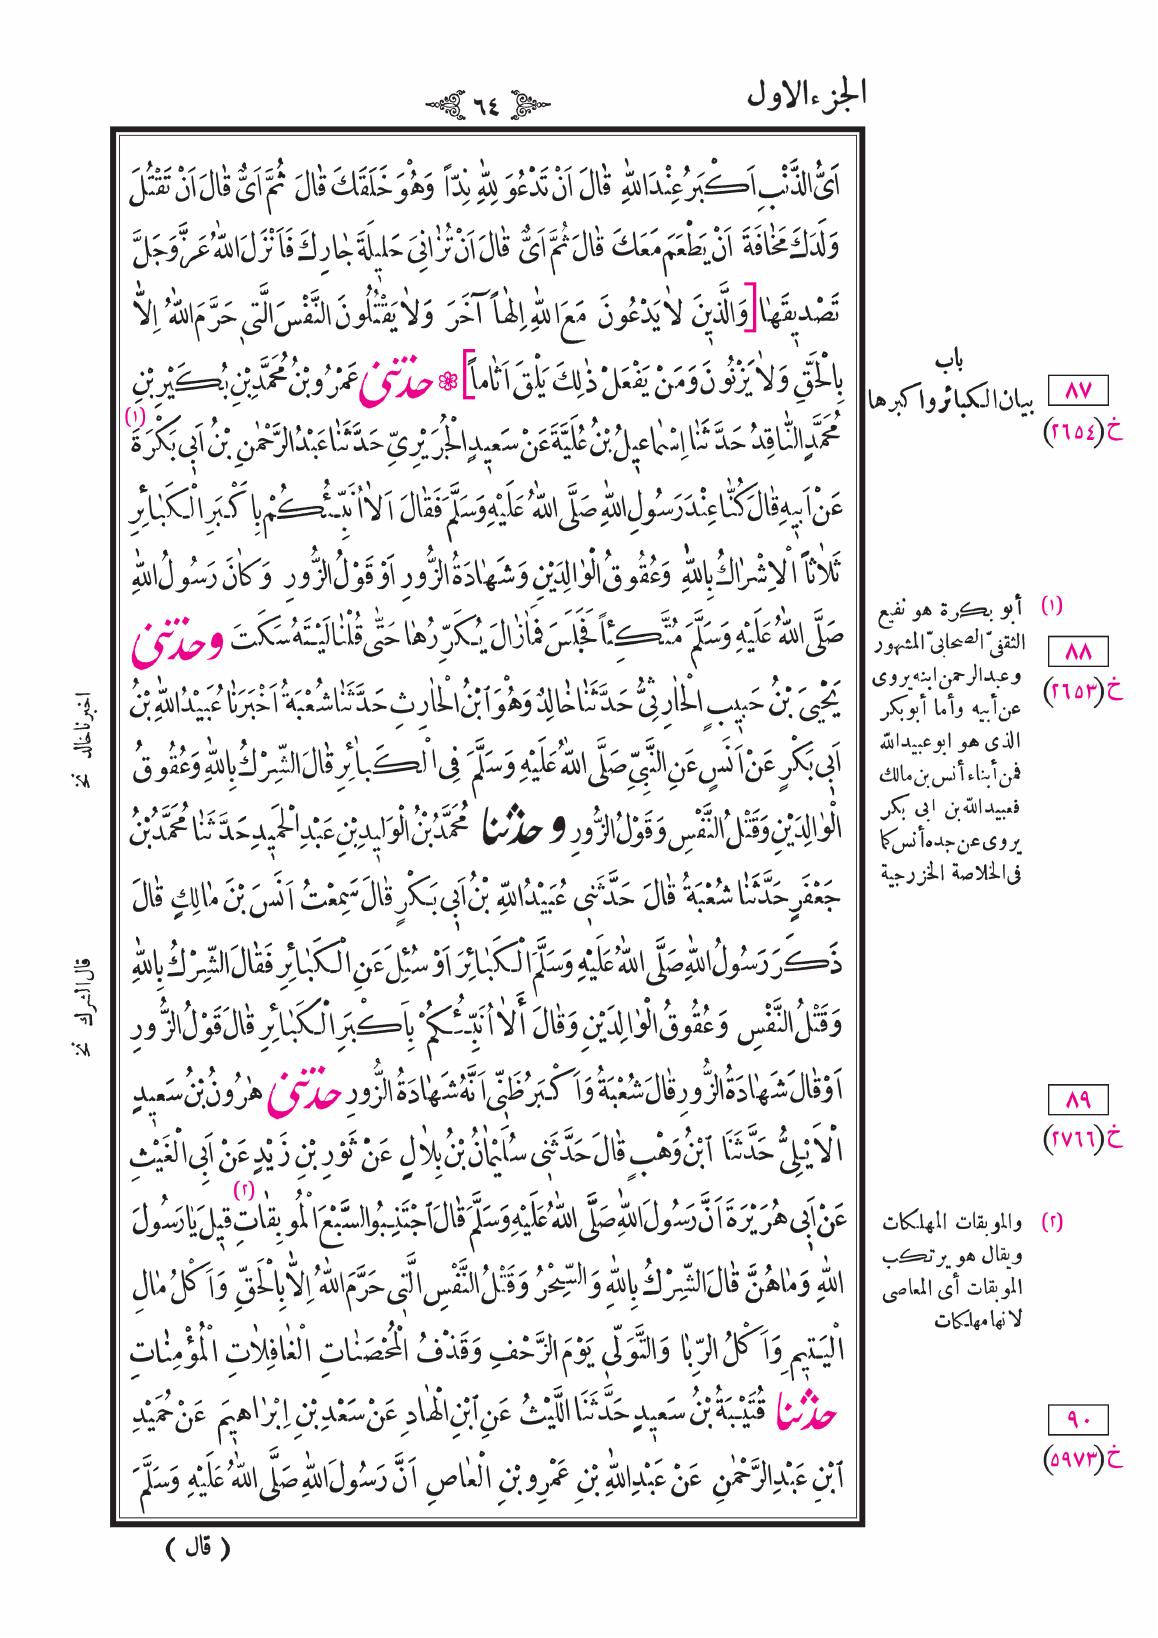 الجزء الاول
٦٤
اَىُّ الذَّنْبِ اَكْبَرُ عِنْدَ اللّٰهِ قَالَ اَنْ تَدْعُوَ لِلّٰهِ نِدّاً وَهُوَ خَلَقَكَ قَالَ ثُمَّ اَىٌّ قَالَ اَنْ تَقْتُلَ
وَلَدَكَ مَخَافَةَ اَنْ يَطْعَمَ مَعَكَ قَالَ ثُمَّ اَىٌّ قَالَ اَنْ تُزَانِىَ حَلِيلَةَ جَارِكَ فَاَنْزَلَ اللّٰهُ عَزَّ وَجَلَّ
تَصْدِيقَهَا [وَالَّذِينَ لاٰ يَدْعُونَ مَعَ اللّٰهِ اِلٰهاً آخَرَ وَلاٰ يَقْتُلُونَ النَّفْسَ الَّتِى حَرَّمَ اللّٰهُ اِلاّٰ
بِالْحَقِّ وَلاٰ يَزْنُونَ وَمَنْ يَفْعَلْ ذٰلِكَ يَلْقَ اَثَاماً] ۞ حدثنى عَمْرُو بْنُ مُحَمَّدِ بْنِ بُكَيْرِ بْنِ
مُحَمَّدٍ النَّاقِدُ حَدَّثَنَا اِسْمَاعِيلُ بْنُ عُلَيَّةَ عَنْ سَعِيدٍ الْجُرَيْرِىِّ حَدَّثَنَا عَبْدُ الرَّحْمٰنِ بْنُ اَبِى بَكْرَةَ (١)
عَنْ اَبِيهِ قَالَ كُنَّا عِنْدَ رَسُولِ اللّٰهِ صَلَّى اللّٰهُ عَلَيْهِ وَسَلَّمَ فَقَالَ اَلاٰ اُنَبِّئُكُمْ بِاَكْبَرِ الْكَبَائِرِ
ثَلاٰثاً اَلْاِشْرَاكُ بِاللّٰهِ وَعُقُوقُ الْوَالِدَيْنِ وَشَهَادَةُ الزُّورِ اَوْ قَوْلُ الزُّورِ وَكَانَ رَسُولُ اللّٰهِ
صَلَّى اللّٰهُ عَلَيْهِ وَسَلَّمَ مُتَّكِئاً فَجَلَسَ فَمَا زَالَ يُكَرِّرُهَا حَتّٰى قُلْنَا لَيْتَهُ سَكَتَ وحدثنى
يَحْيَى بْنُ حَبِيبٍ الْحَارِثِىُّ حَدَّثَنَا خَالِدٌ وَهُوَ ابْنُ الْحَارِثِ حَدَّثَنَا شُعْبَةُ اَخْبَرَنَا عُبَيْدُ اللّٰهِ بْنُ
اَبِى بَكْرٍ عَنْ اَنَسٍ عَنِ النَّبِىِّ صَلَّى اللّٰهُ عَلَيْهِ وَسَلَّمَ فِى الْكَبَائِرِ قَالَ الشِّرْكُ بِاللّٰهِ وَعُقُوقُ
الْوَالِدَيْنِ وَقَتْلُ النَّفْسِ وَقَوْلُ الزُّورِ وحدثنا مُحَمَّدُ بْنُ الْوَلِيدِ بْنِ عَبْدِ الْحَمِيدِ حَدَّثَنَا مُحَمَّدُ بْنُ
جَعْفَرٍ حَدَّثَنَا شُعْبَةُ قَالَ حَدَّثَنِى عُبَيْدُ اللّٰهِ بْنُ اَبِى بَكْرٍ قَالَ سَمِعْتُ اَنَسَ بْنَ مَالِكٍ قَالَ
ذَكَرَ رَسُولُ اللّٰهِ صَلَّى اللّٰهُ عَلَيْهِ وَسَلَّمَ الْكَبَائِرَ اَوْ سُئِلَ عَنِ الْكَبَائِرِ فَقَالَ الشِّرْكُ بِاللّٰهِ
وَقَتْلُ النَّفْسِ وَعُقُوقُ الْوَالِدَيْنِ وَقَالَ أَلاٰ اُنَبِّئُكُمْ بِاَكْبَرِ الْكَبَائِرِ قَالَ قَوْلُ الزُّورِ
اَوْ قَالَ شَهَادَةُ الزُّورِ قَالَ شُعْبَةُ وَاَكْبَرُ ظَنِّى اَنَّهُ شَهَادَةُ الزُّورِ حدثنى هٰرُونُ بْنُ سَعِيدٍ
الْاَيْلِىُّ حَدَّثَنَا ابْنُ وَهْبٍ قَالَ حَدَّثَنِى سُلَيْمَانُ بْنُ بِلاٰلٍ عَنْ ثَوْرِ بْنِ زَيْدٍ عَنْ اَبِى الْغَيْثِ
عَنْ اَبِى هُرَيْرَةَ اَنَّ رَسُولَ اللّٰهِ صَلَّى اللّٰهُ عَلَيْهِ وَسَلَّمَ قَالَ اجْتَنِبُوا السَّبْعَ الْمُوبِقَاتِ (٢) قِيلَ يَا رَسُولَ
اللّٰهِ وَمَا هُنَّ قَالَ الشِّرْكُ بِاللّٰهِ وَالسِّحْرُ وَقَتْلُ النَّفْسِ الَّتِى حَرَّمَ اللّٰهُ اِلاّٰ بِالْحَقِّ وَاَكْلُ مَالِ
الْيَتِيمِ وَاَكْلُ الرِّبَا وَالتَّوَلِّى يَوْمَ الزَّحْفِ وَقَذْفُ الْمُحْصَنَاتِ الْغَافِلاٰتِ الْمُؤْمِنَاتِ
حدثنا قُتَيْبَةُ بْنُ سَعِيدٍ حَدَّثَنَا اللَّيْثُ عَنِ ابْنِ الْهَادِ عَنْ سَعْدِ بْنِ اِبْرَاهِيمَ عَنْ حُمَيْدِ
ابْنِ عَبْدِ الرَّحْمٰنِ عَنْ عَبْدِ اللّٰهِ بْنِ عَمْرِو بْنِ الْعَاصِ اَنَّ رَسُولَ اللّٰهِ صَلَّى اللّٰهُ عَلَيْهِ وَسَلَّمَ
( قال )
باب
بيان الكبائر واكبرها
٨٧
خ (٢٦٥٤)
(١) أبو بكرة هو نفيع
الثقفىّ الصحابىّ المشهور
وعبدالرحمن ابنه يروى
عن أبيه وأما أبو بكر
الذى هو ابو عبيدالله
فمن أبناء أنس بن مالك
فعبيدالله بن ابى بكر
يروى عن جده أنس كما
فى الخلاصة الخزرجية
٨٨
خ (٢٦٥٣)
٨٩
خ (٢٧٦٦)
(٢) والموبقات المهلكات
ويقال هو يرتكب
الموبقات أى المعاصى
لانها مهلكات
٩٠
خ (٥٩٧٣)
اخبرنا خالد نخ
قال الشرك نخ